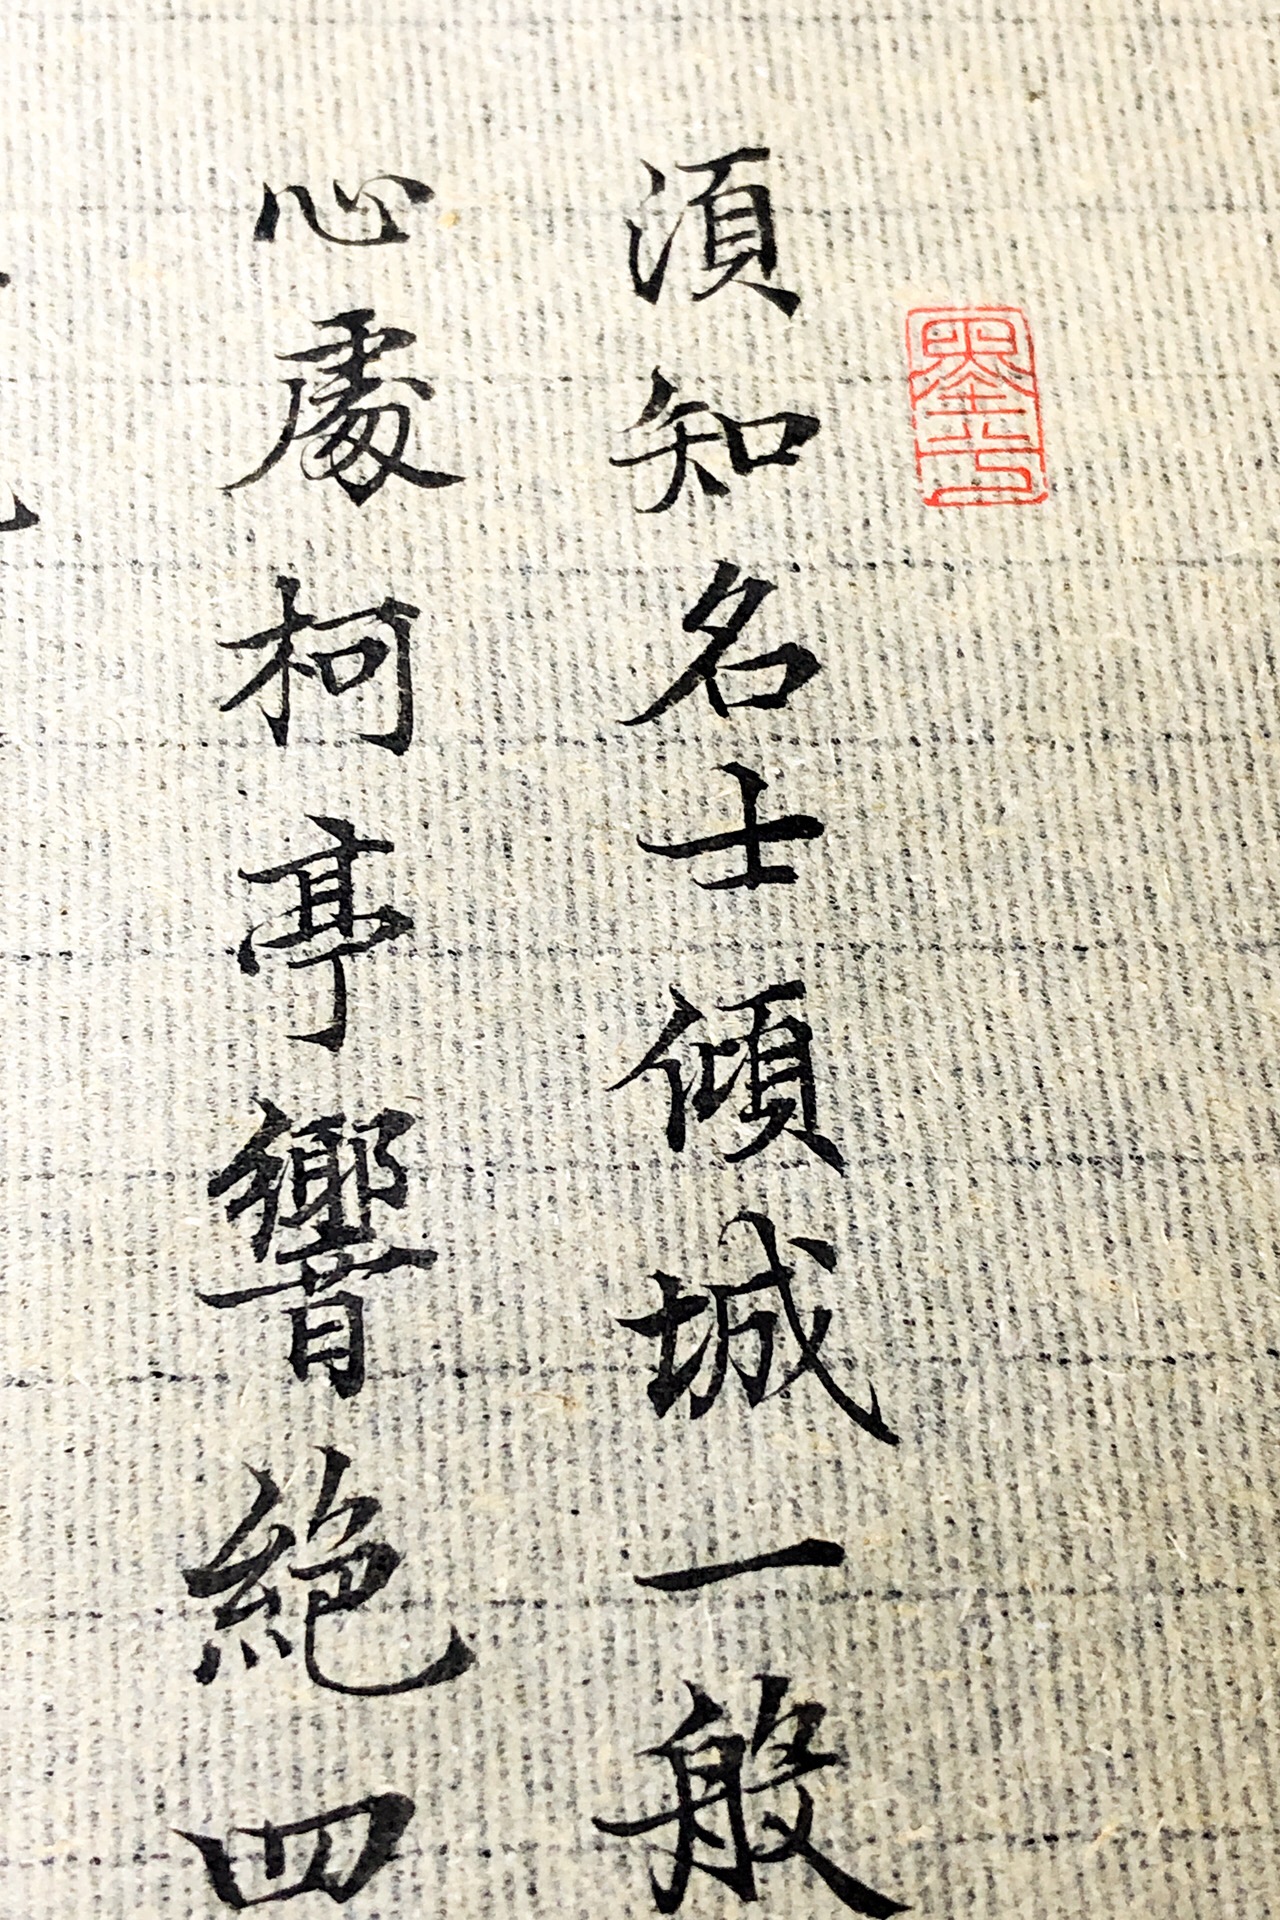 須知名士傾城一般
心處柯亭響絕四